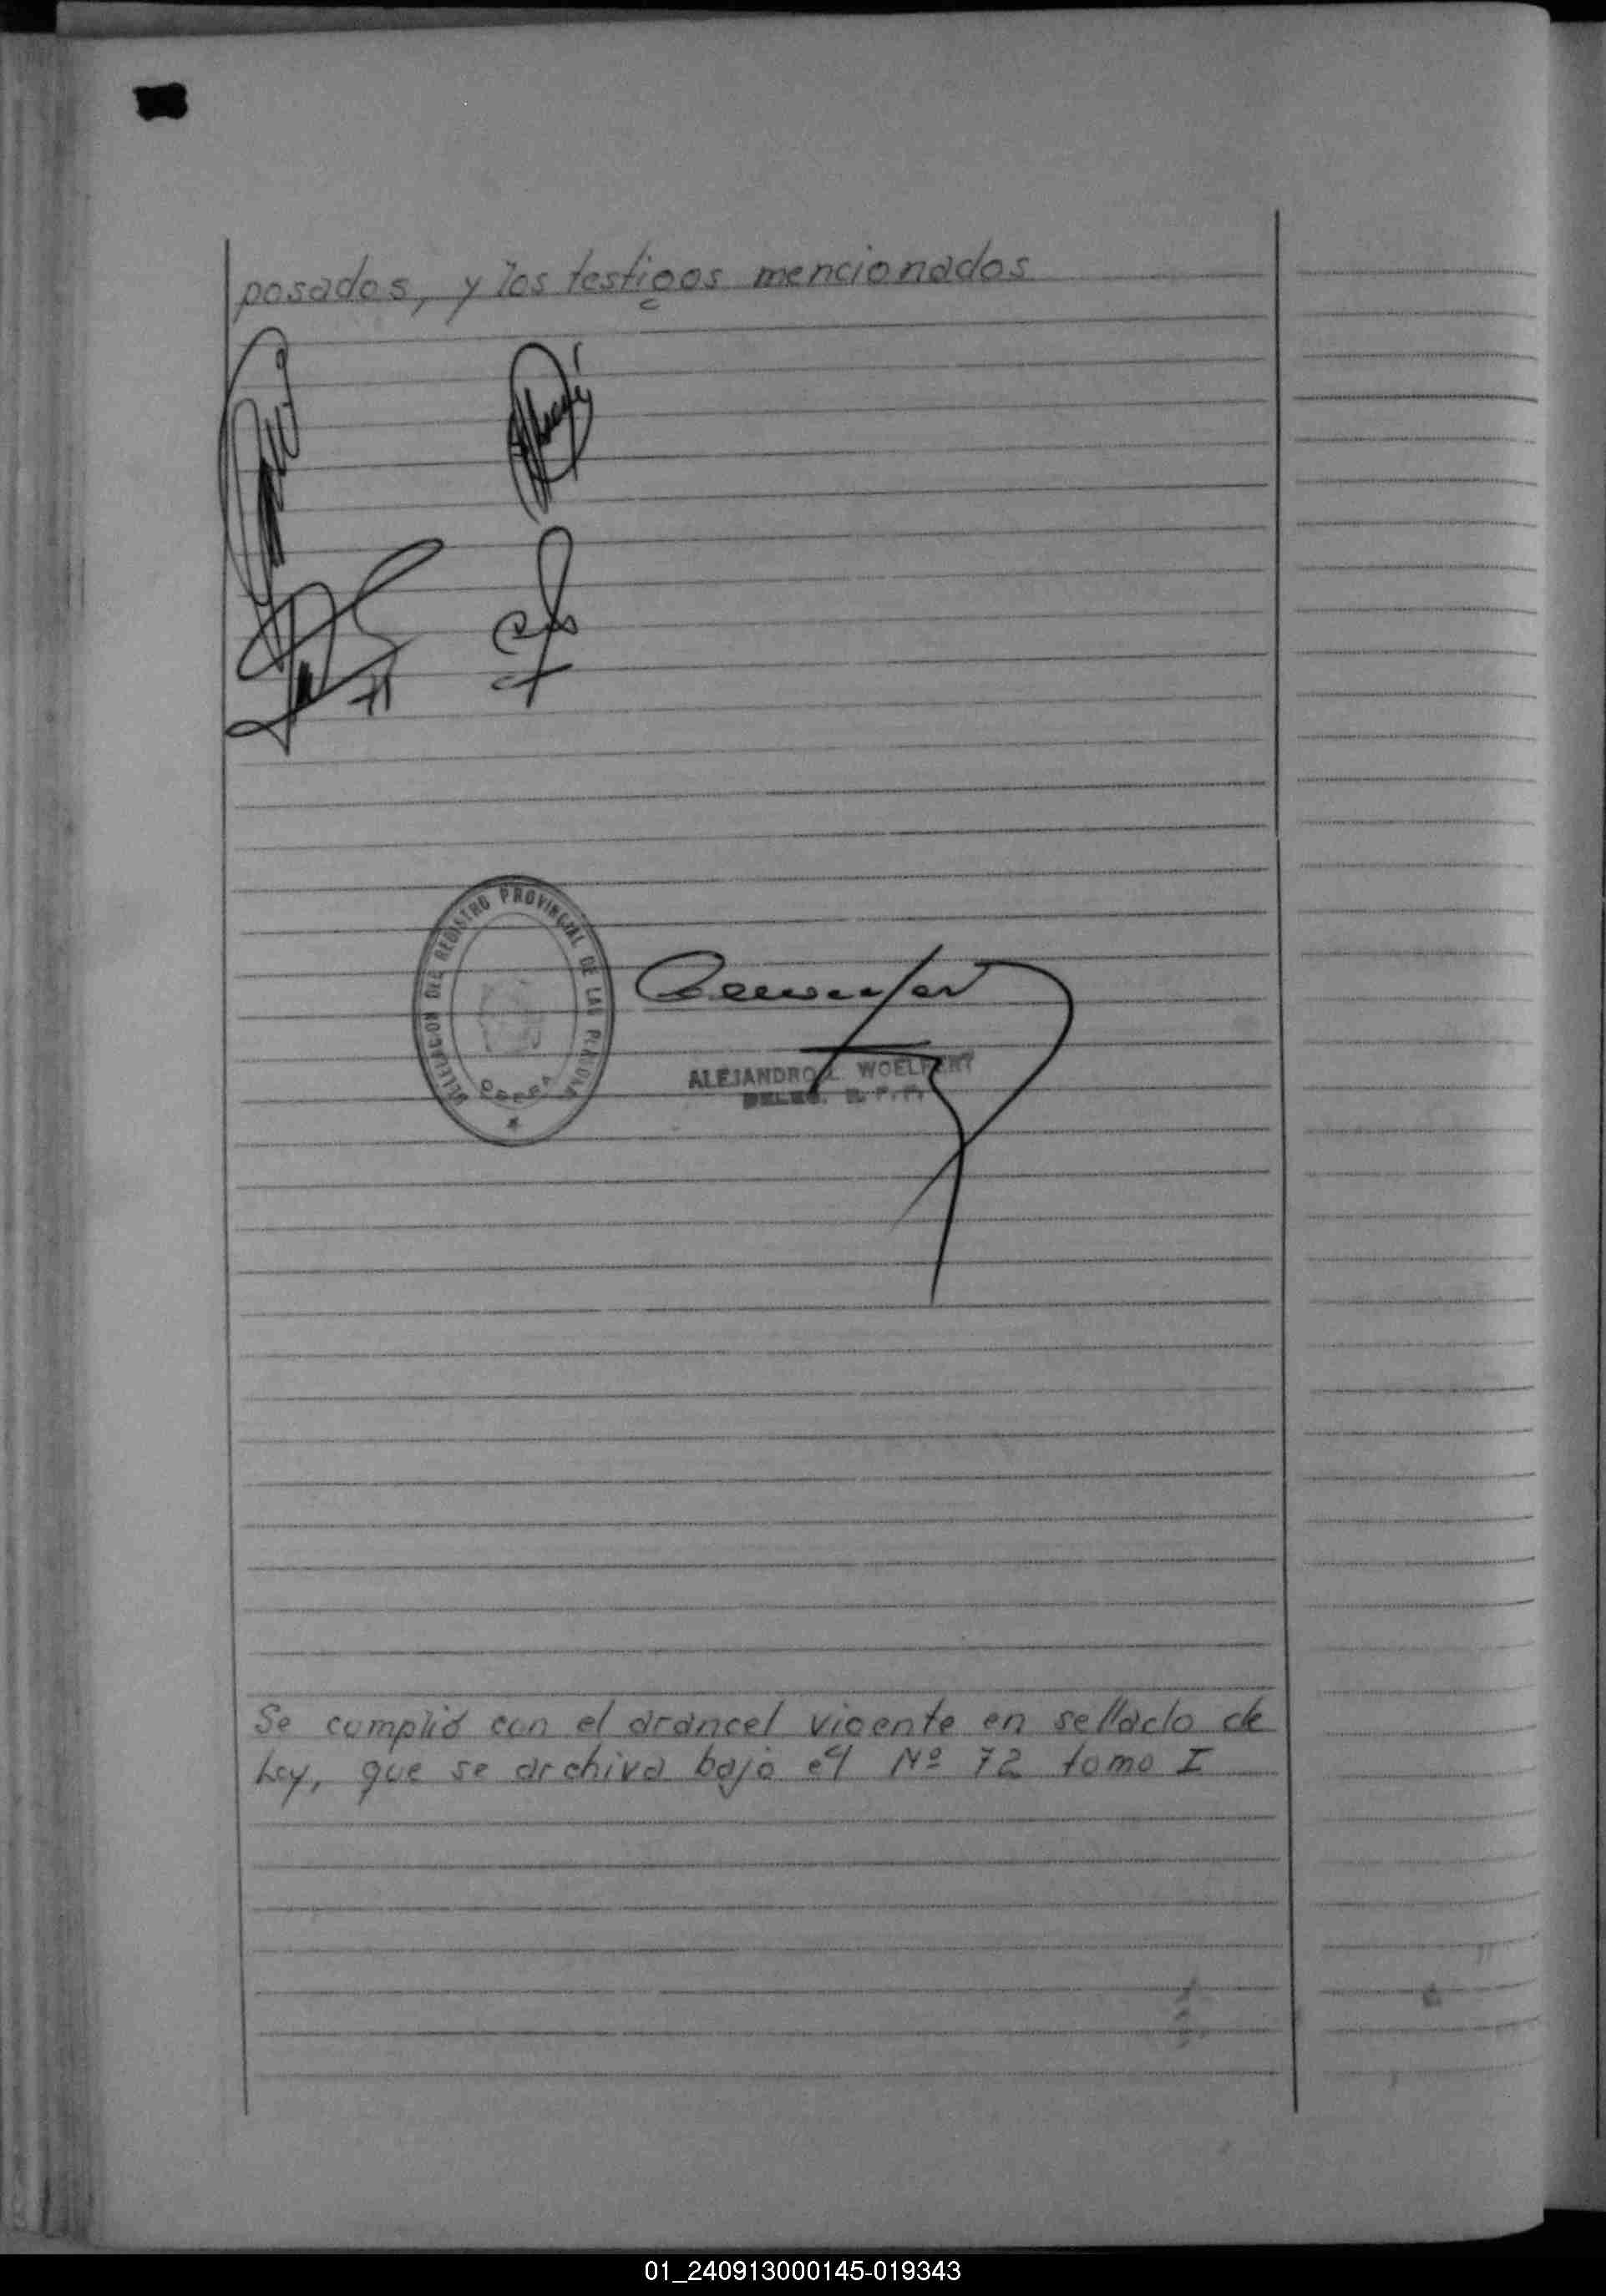 posados, y los testigos mencionados
DELEGACION DEL REGISTRO PROVINCIAL DE LAS PERSONAS
ALEJANDRO L. WOELFERT
DELEG. R. P. P.
Se cumplió con el arancel vigente en sellado de
Ley, que se archiva bajo el Nº 72 tomo I
01_240913000145-019343